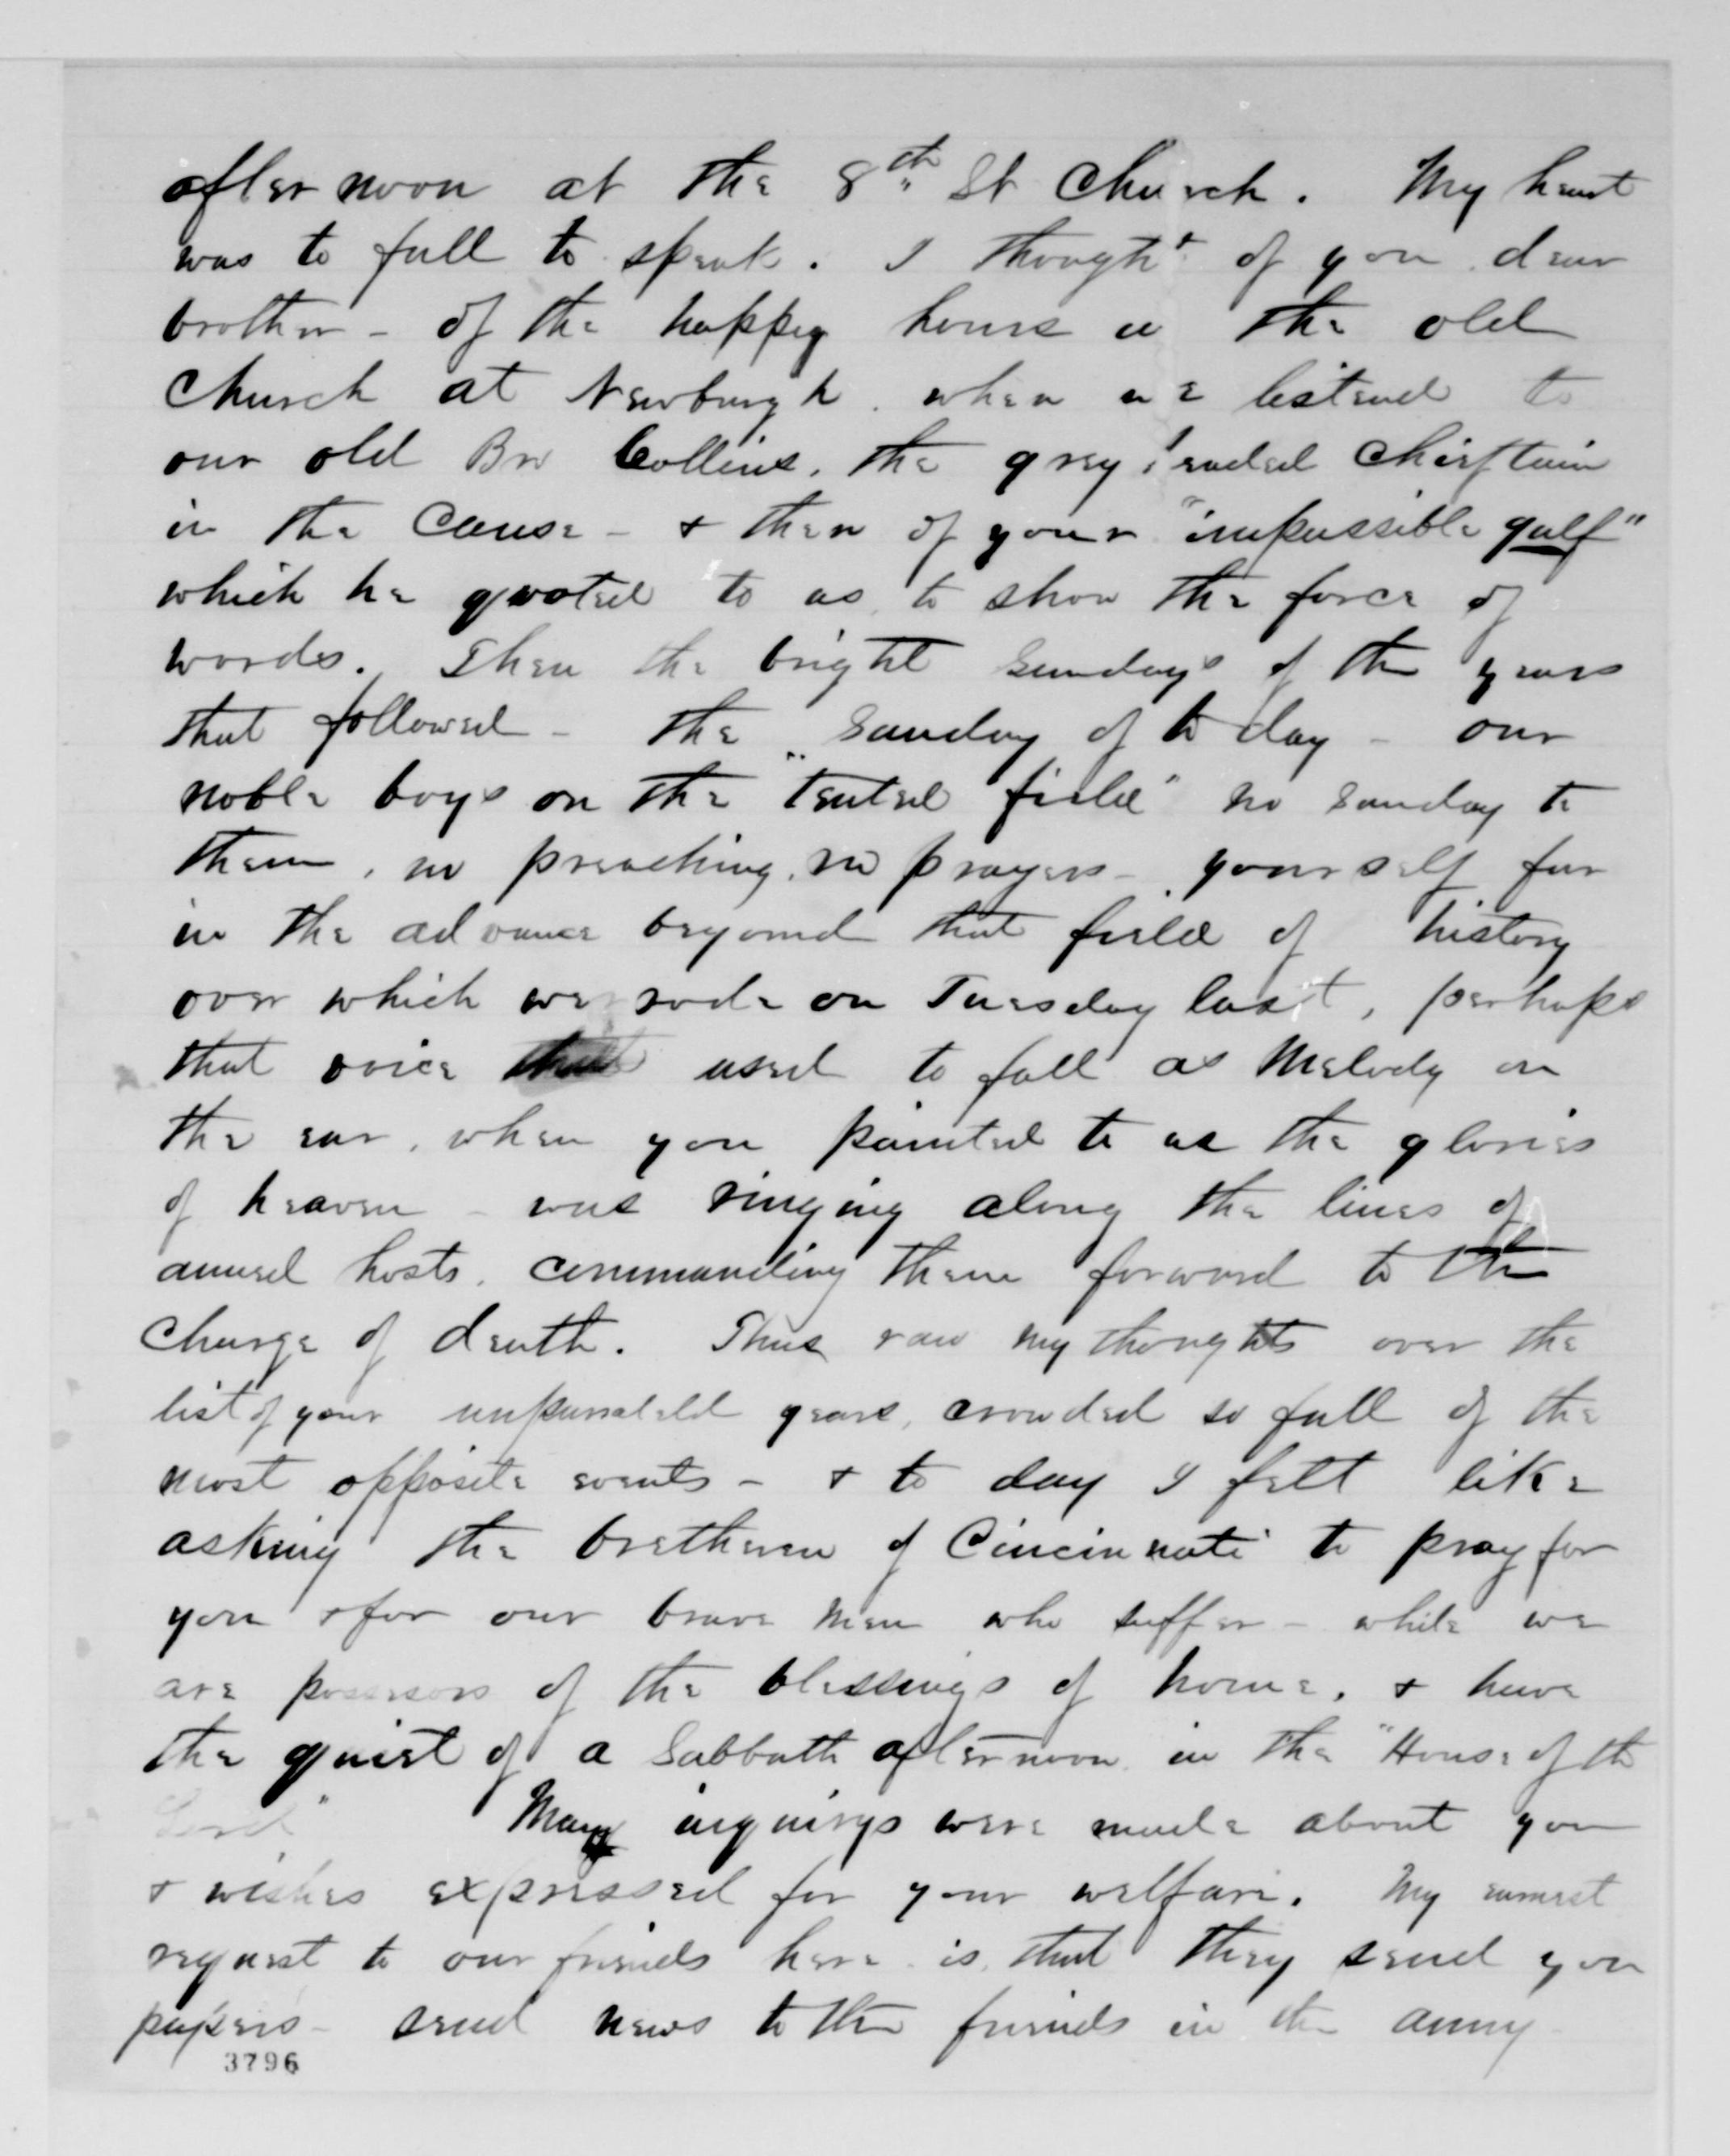 afternoon at the 8th St Church. My heart
was to full to speak. I thought of you dear
brother - of the happy hours in the old
Church at Newburgh. when we listened to
our old Bro Collins, the grey headed Chieftain
in the Cause - & then of your "impassible gulf"
which he quoted to us to show the force of
words. Then the bright Sundays of the years
that followed - the Sunday of to day - our
noble boys on the "tented field" no Sunday to
them, no preaching, no prayers - yourself far
in the advance beyond that field of history
over which we rode on Tuesday last, perhaps
that voice that used to fall as Melody on
the ear, when you painted to us the glories
of heaven - was ringing along the lines of
armed hosts, commanding them forward to the
Charge of death. Thus ran my thoughts over the
list of your unparraleld years, crowded so full of the
most opposite events - & to day I felt like
asking the bretheren of Cincinnati to pray for
you & for our brave men who suffer - while we
are possesors of the blessings of home, & have
the quiet of a Sabbath afternoon in the "House of the
Lord" Many inquirys were made about you
& wishes expressed for your welfare. My earnest
request to our friends here is, that they send you
papers - send news to the friends in the army -
3796